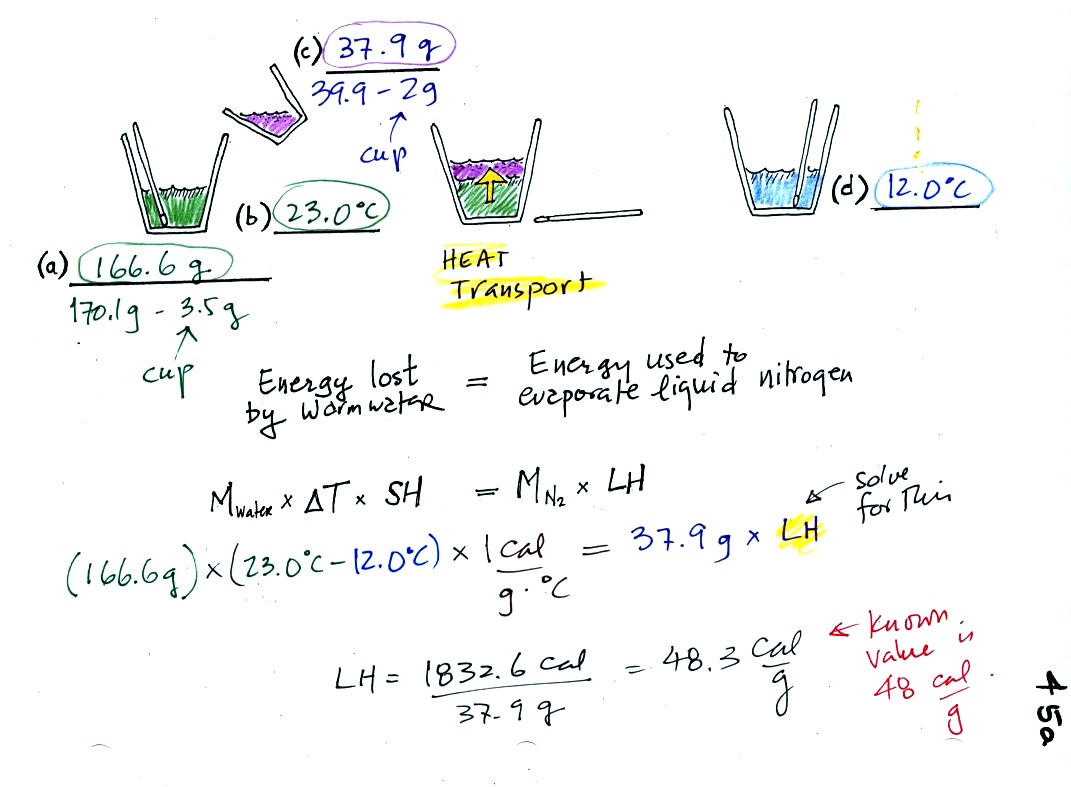 (c) 37.9 g
39.9 - 2g
cup
(b) 23.0°C
(d) 12.0°C
(a) 166.6 g
170.1g - 3.5g
cup
HEAT
Transport
Energy lost
by warm water
=
Energy used to
evaporate liquid nitrogen
M water × ΔT × SH = M N2 × LH
solve
for this
(166.6g) × (23.0°C - 12.0°C) × 1 cal / g·°C = 37.9 g × LH
LH = 1832.6 cal / 37.9 g = 48.3 cal / g
known
value is
48 cal / g
45a